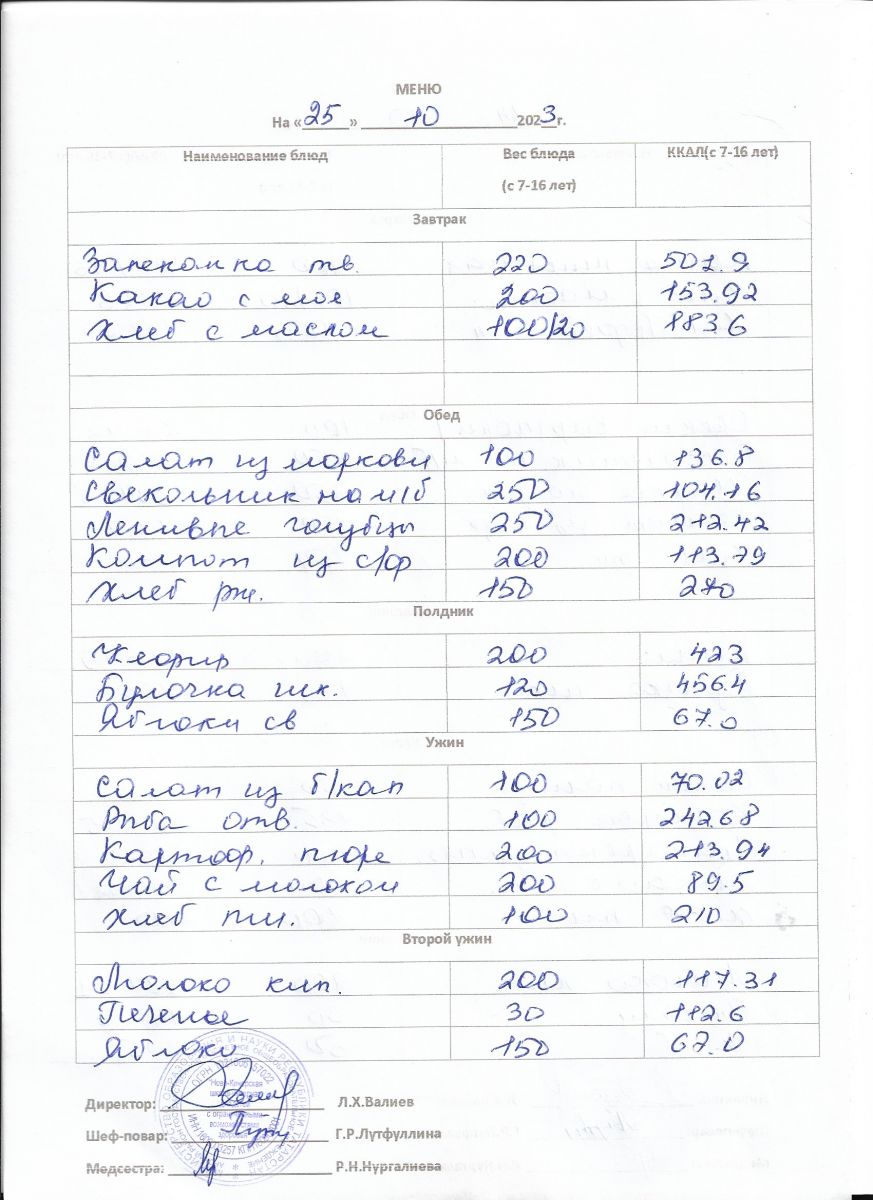 МЕНЮ
На «25» 10 2023г.
Наименование блюд Вес блюда (с 7-16 лет) ККАЛ(с 7-16 лет)
Завтрак
Запеканка тв. 220 501.9
Какао с мол 200 153.92
Хлеб с маслом 100/20 183.6
Обед
Салат из моркови 100 136.8
Свекольник на м/б 250 104.16
Ленивые голубцы 250 212.42
Компот из с/ф 200 113.79
Хлеб рж. 150 270
Полдник
Кефир 200 423
Булочка шк. 120 456.4
Яблоки св 150 67.0
Ужин
Салат из б/кап 100 70.02
Рыба отв. 100 242.68
Картоф. пюре 200 213.94
Чай с молоком 200 89.5
Хлеб пш. 100 210
Второй ужин
Молоко кип. 200 117.31
Печенье 30 112.6
Яблоко 150 67.0
Директор: Л.Х.Валиев
Шеф-повар: Г.Р.Лутфуллина
Медсестра: Р.Н.Нургалиева